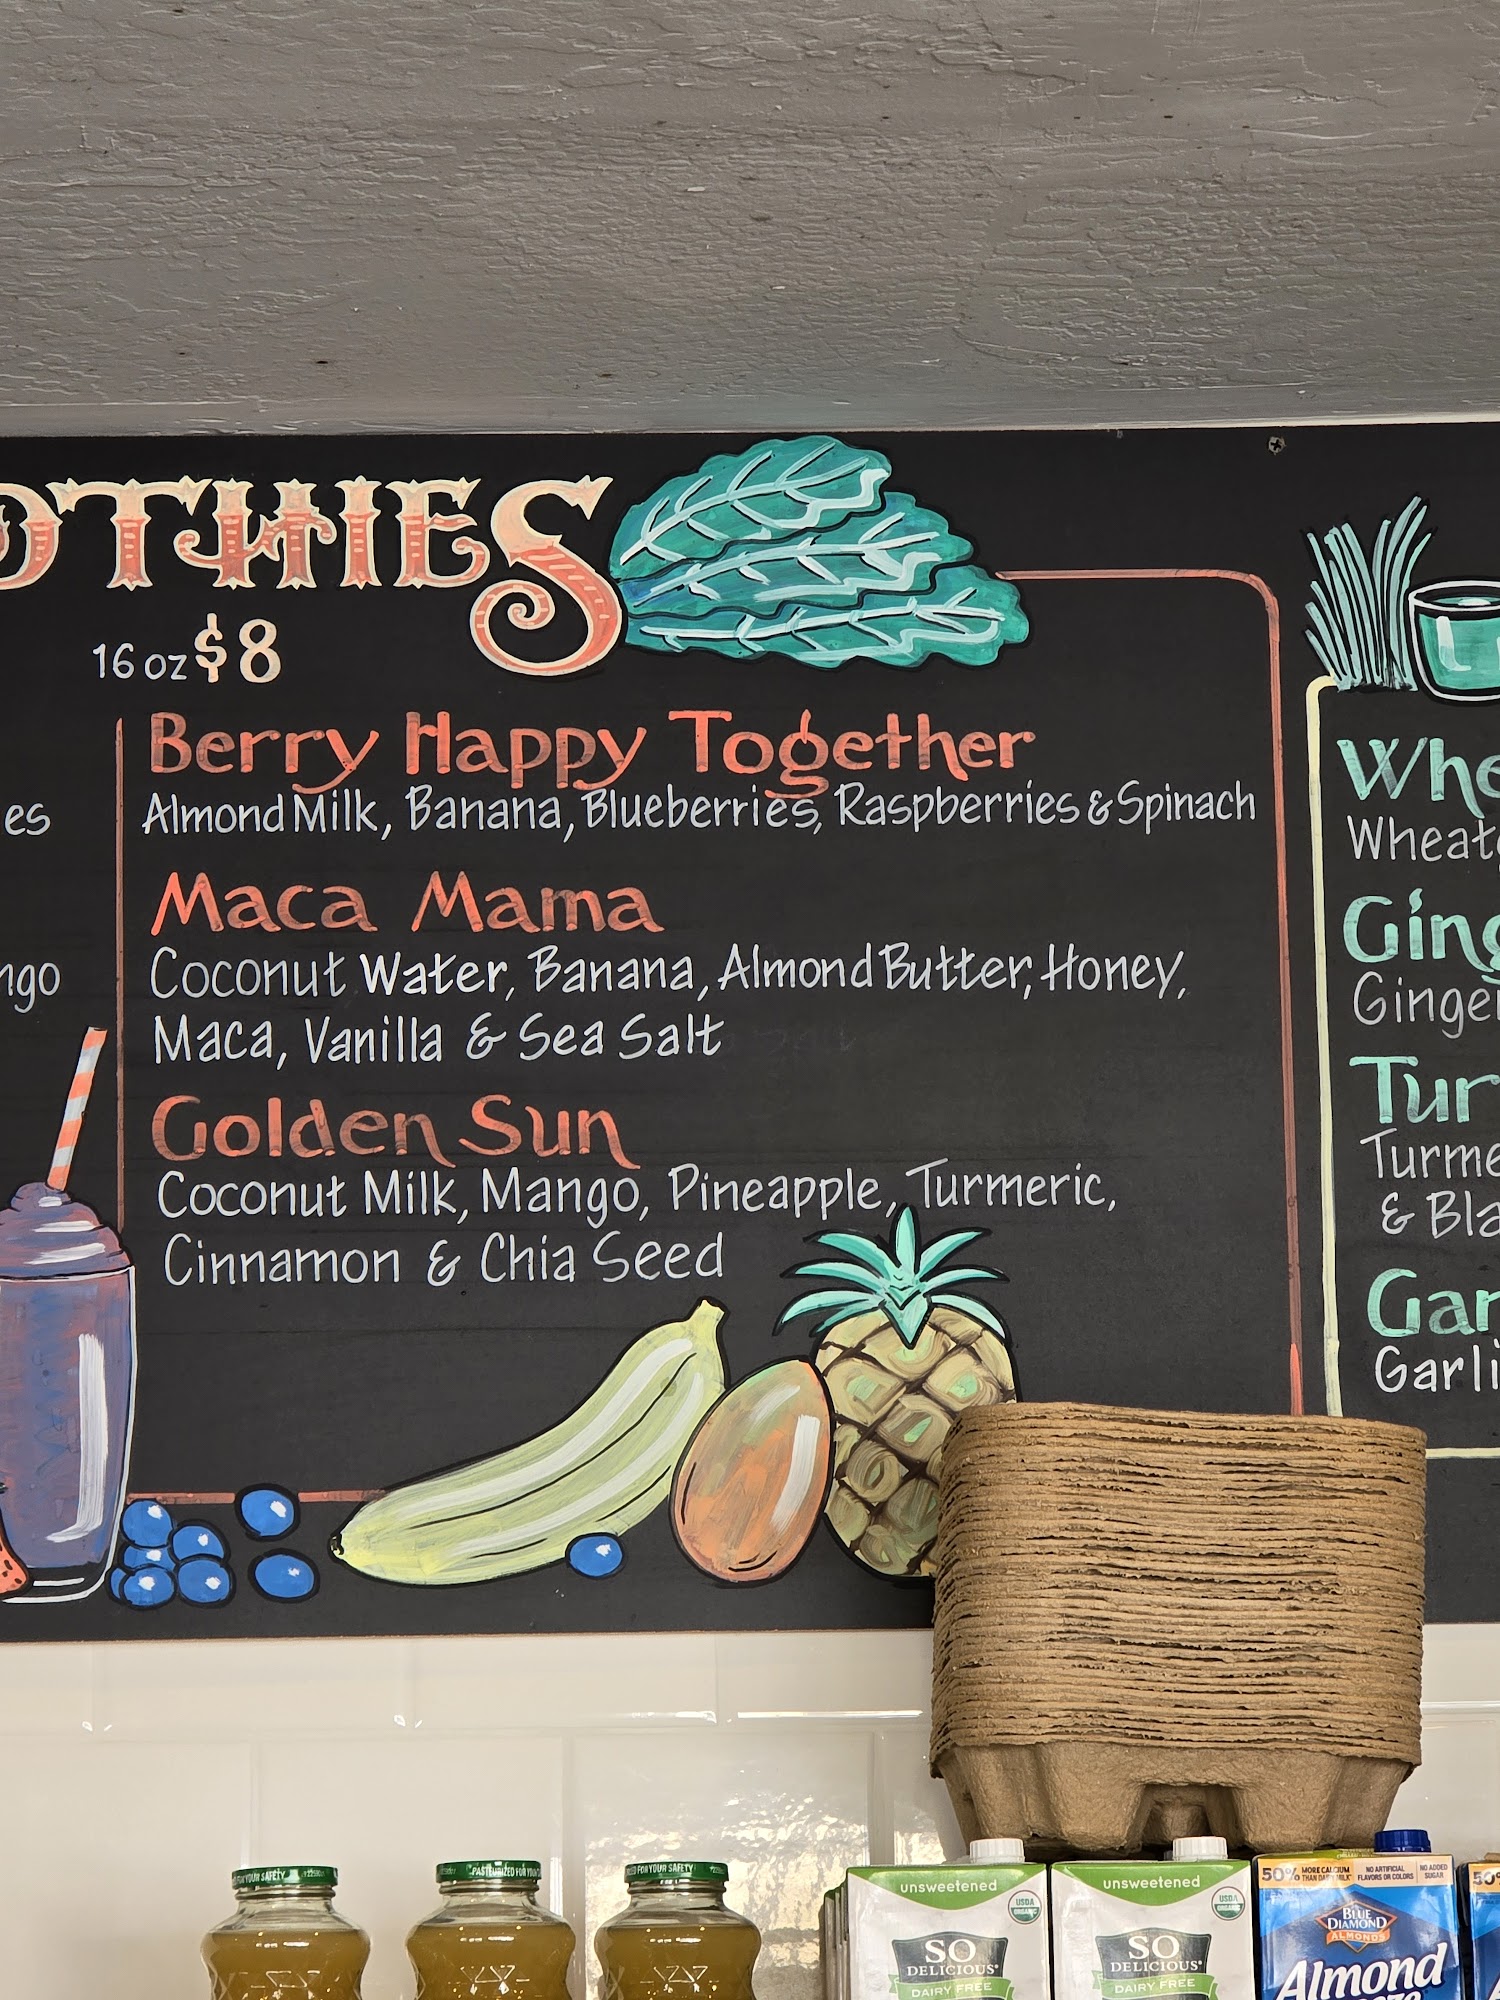 16 oz $8
Berry Happy Together
Almond Milk, Banana, Blueberries, Raspberries & Spinach
Maca Mama
Coconut Water, Banana, Almond Butter, Honey,
Maca, Vanilla & Sea Salt
Golden Sun
Coconut Milk, Mango, Pineapple, Turmeric,
Cinnamon & Chia Seed
unsweetened
USDA
ORGANIC
SO
DELICIOUS
DAIRY FREE
unsweetened
USDA
ORGANIC
SO
DELICIOUS
DAIRY FREE
50% MORE CALCIUM
THAN DAIRY MILK*
NO ARTIFICIAL
FLAVORS OR COLORS
NO ADDED
SUGAR
BLUE
DIAMOND
ALMONDS
Almond